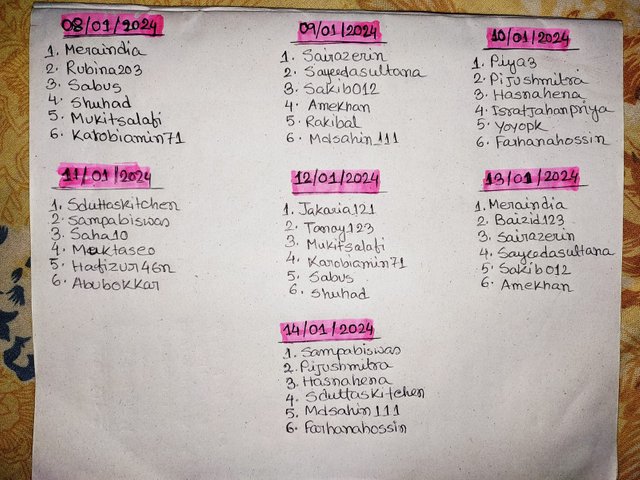 08/01/2024
1. Meraindia
2. Rubina203
3. Sabus
4. Shuhad
5. Mukitsalafi
6. Karobiamin71
09/01/2024
1. Sairazerin
2. Sayeedasultana
3. Sakib012
4. Amekhan
5. Rakibal
6. Mdsahin_111
10/01/2024
1. Piya3
2. Pijushmitra
3. Hasnahena
4. Isratjahanpriya
5. Yoyopk
6. Farhanahossin
11/01/2024
1. Sduttaskitchen
2. Sampabiswas
3. Saha10
4. Maktaseo
5. Hafizur46n
6. Abubokkar
12/01/2024
1. Jakaria121
2. Tanay123
3. Mukitsalafi
4. Karobiamin71
5. Sabus
6. Shuhad
13/01/2024
1. Meraindia
2. Baizid123
3. Sairazerin
4. Sayeedasultana
5. Sakib012
6. Amekhan
14/01/2024
1. Sampabiswas
2. Pijushmitra
3. Hasnahena
4. Sduttaskitchen
5. Mdsahin111
6. Farhanahossin